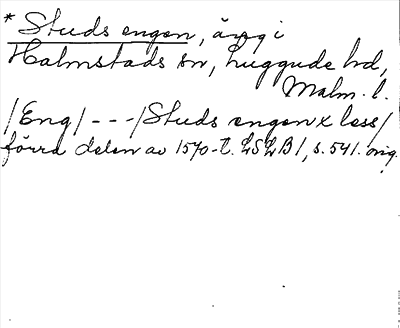 * Studs engen, äng i
Halmstads sn, Luggude hd,
Malm. l.
/Eng/ - - - /Studs engen x less/
förra delen av 1570-t. LSLB1, s. 541. orig.